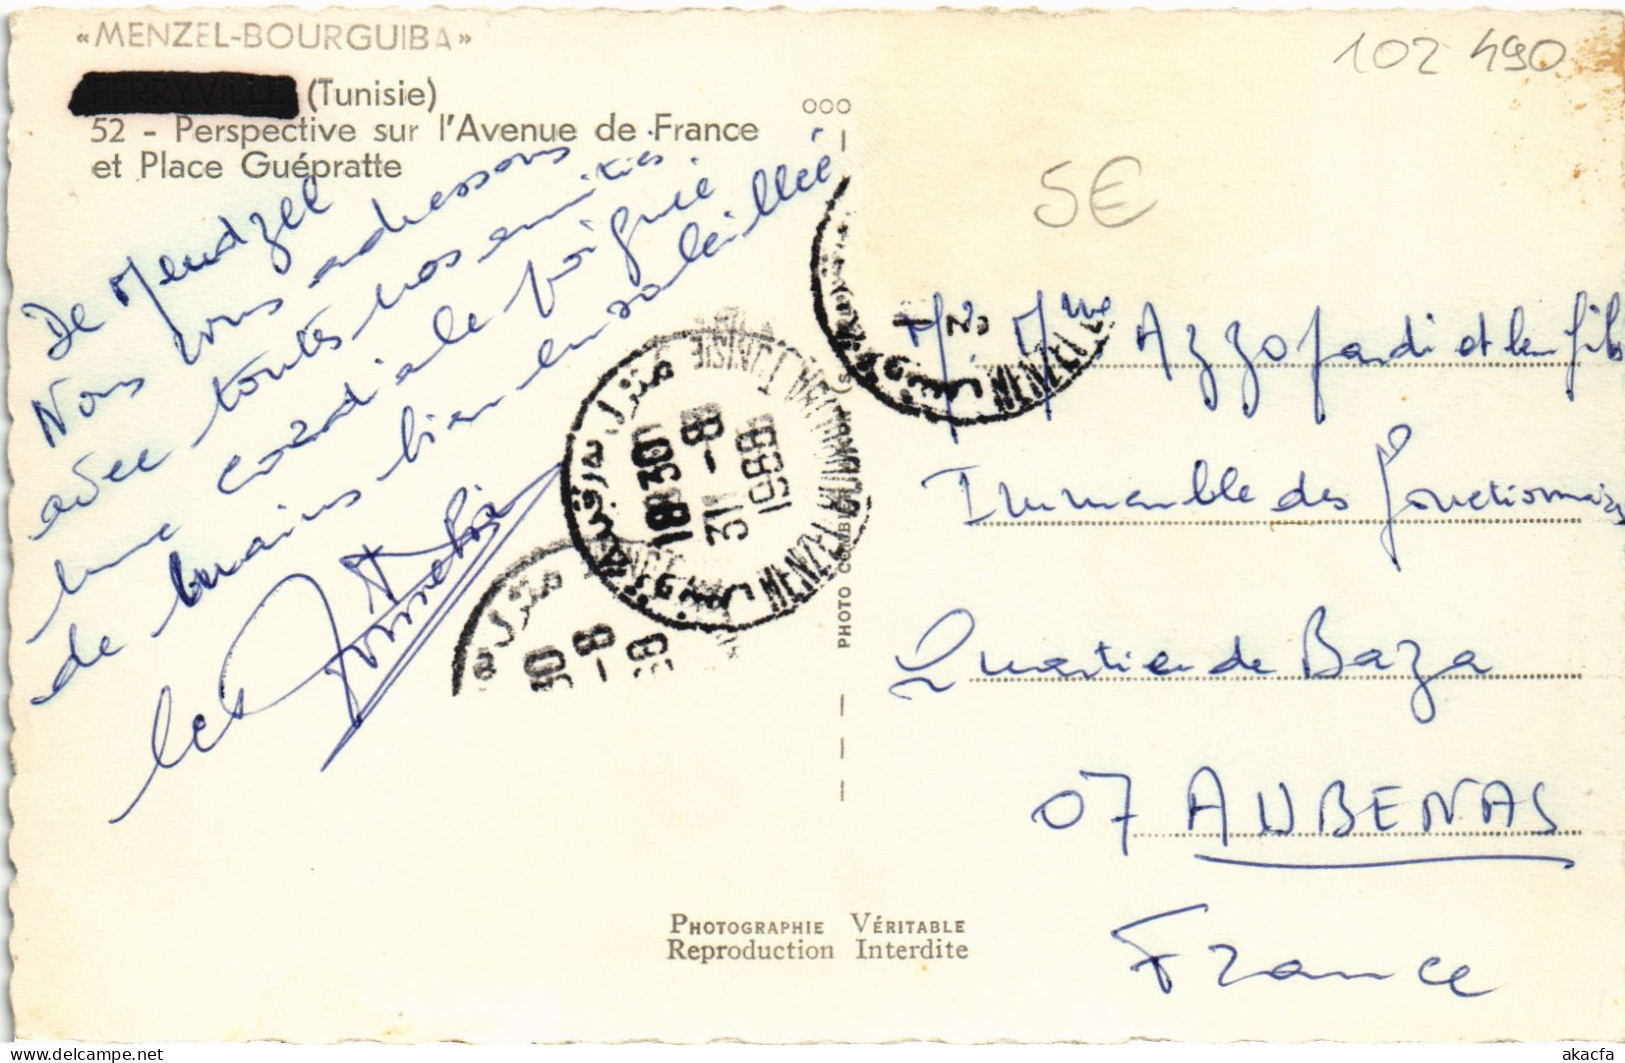 «MENZEL-BOURGUIBA»
FERRYVILLE (Tunisie)
52 - Perspective sur l'Avenue de France
et Place Guépratte
De Mendzel
Nous vous adressons
avec toutes nos amitiés
une cordiale poignée
de mains bien ensoleillée
les
102 490
5€
M. Mme Azzopardi et leur fils
Immeuble des fonctionnaires
Quartier de Baza
07 AUBENAS
France
منزل بورقيبة
MENZEL BOURGUIBA TUNISIE
18H30
31-8
1968
MENZEL
PHOTO COMBIER
PHOTOGRAPHIE VÉRITABLE
Reproduction Interdite
delcampe.net
akacfa